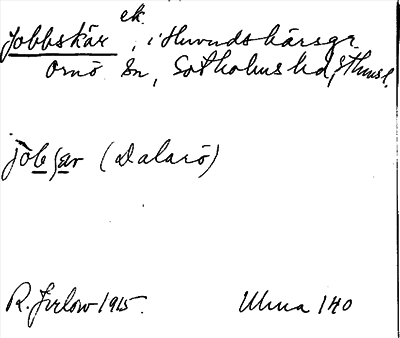 Jobbskär ek., i Huvudskärsgr.
Ornö sn, Sotholms hd, Sthmsl.
jòbʃar (Dalarö)
R. Jirlow 1915. Ulma 140